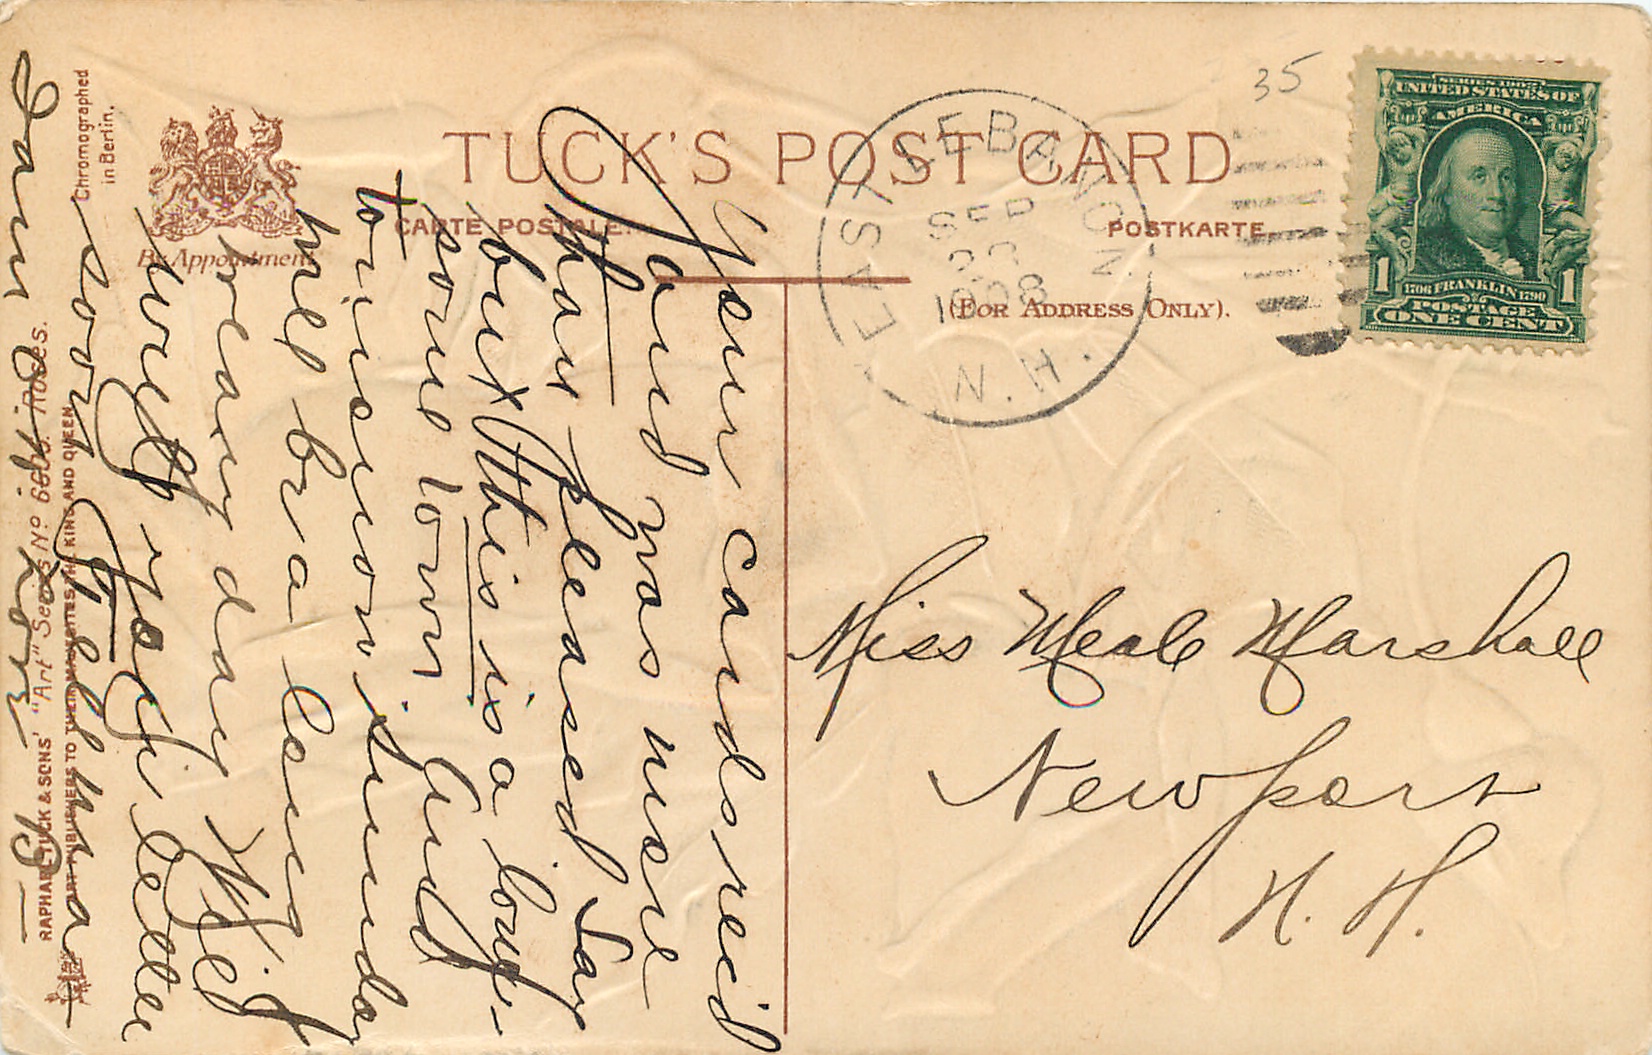 TUCK'S POST CARD
CARTE POSTALE.
POSTKARTE.
(FOR ADDRESS ONLY).
By Appointment
Chromographed
in Berlin.
RAPHAEL TUCK & SONS' "Art" Series No 6606. Roses.
ART PUBLISHERS TO THEIR MAJESTIES THE KING AND QUEEN.
EAST LEBANON
SEP
1908
N.H.
35
SERIES 1902
UNITED STATES OF
AMERICA
1706 FRANKLIN 1790
POSTAGE
1 1
ONE CENT
Miss Meale Marshall
Newport
N. H.
Your card rec'd
and was more
than pleased
but this is a
some town And
tomorrow is Sunday
will be a long
dreary day
write you a letter
soon